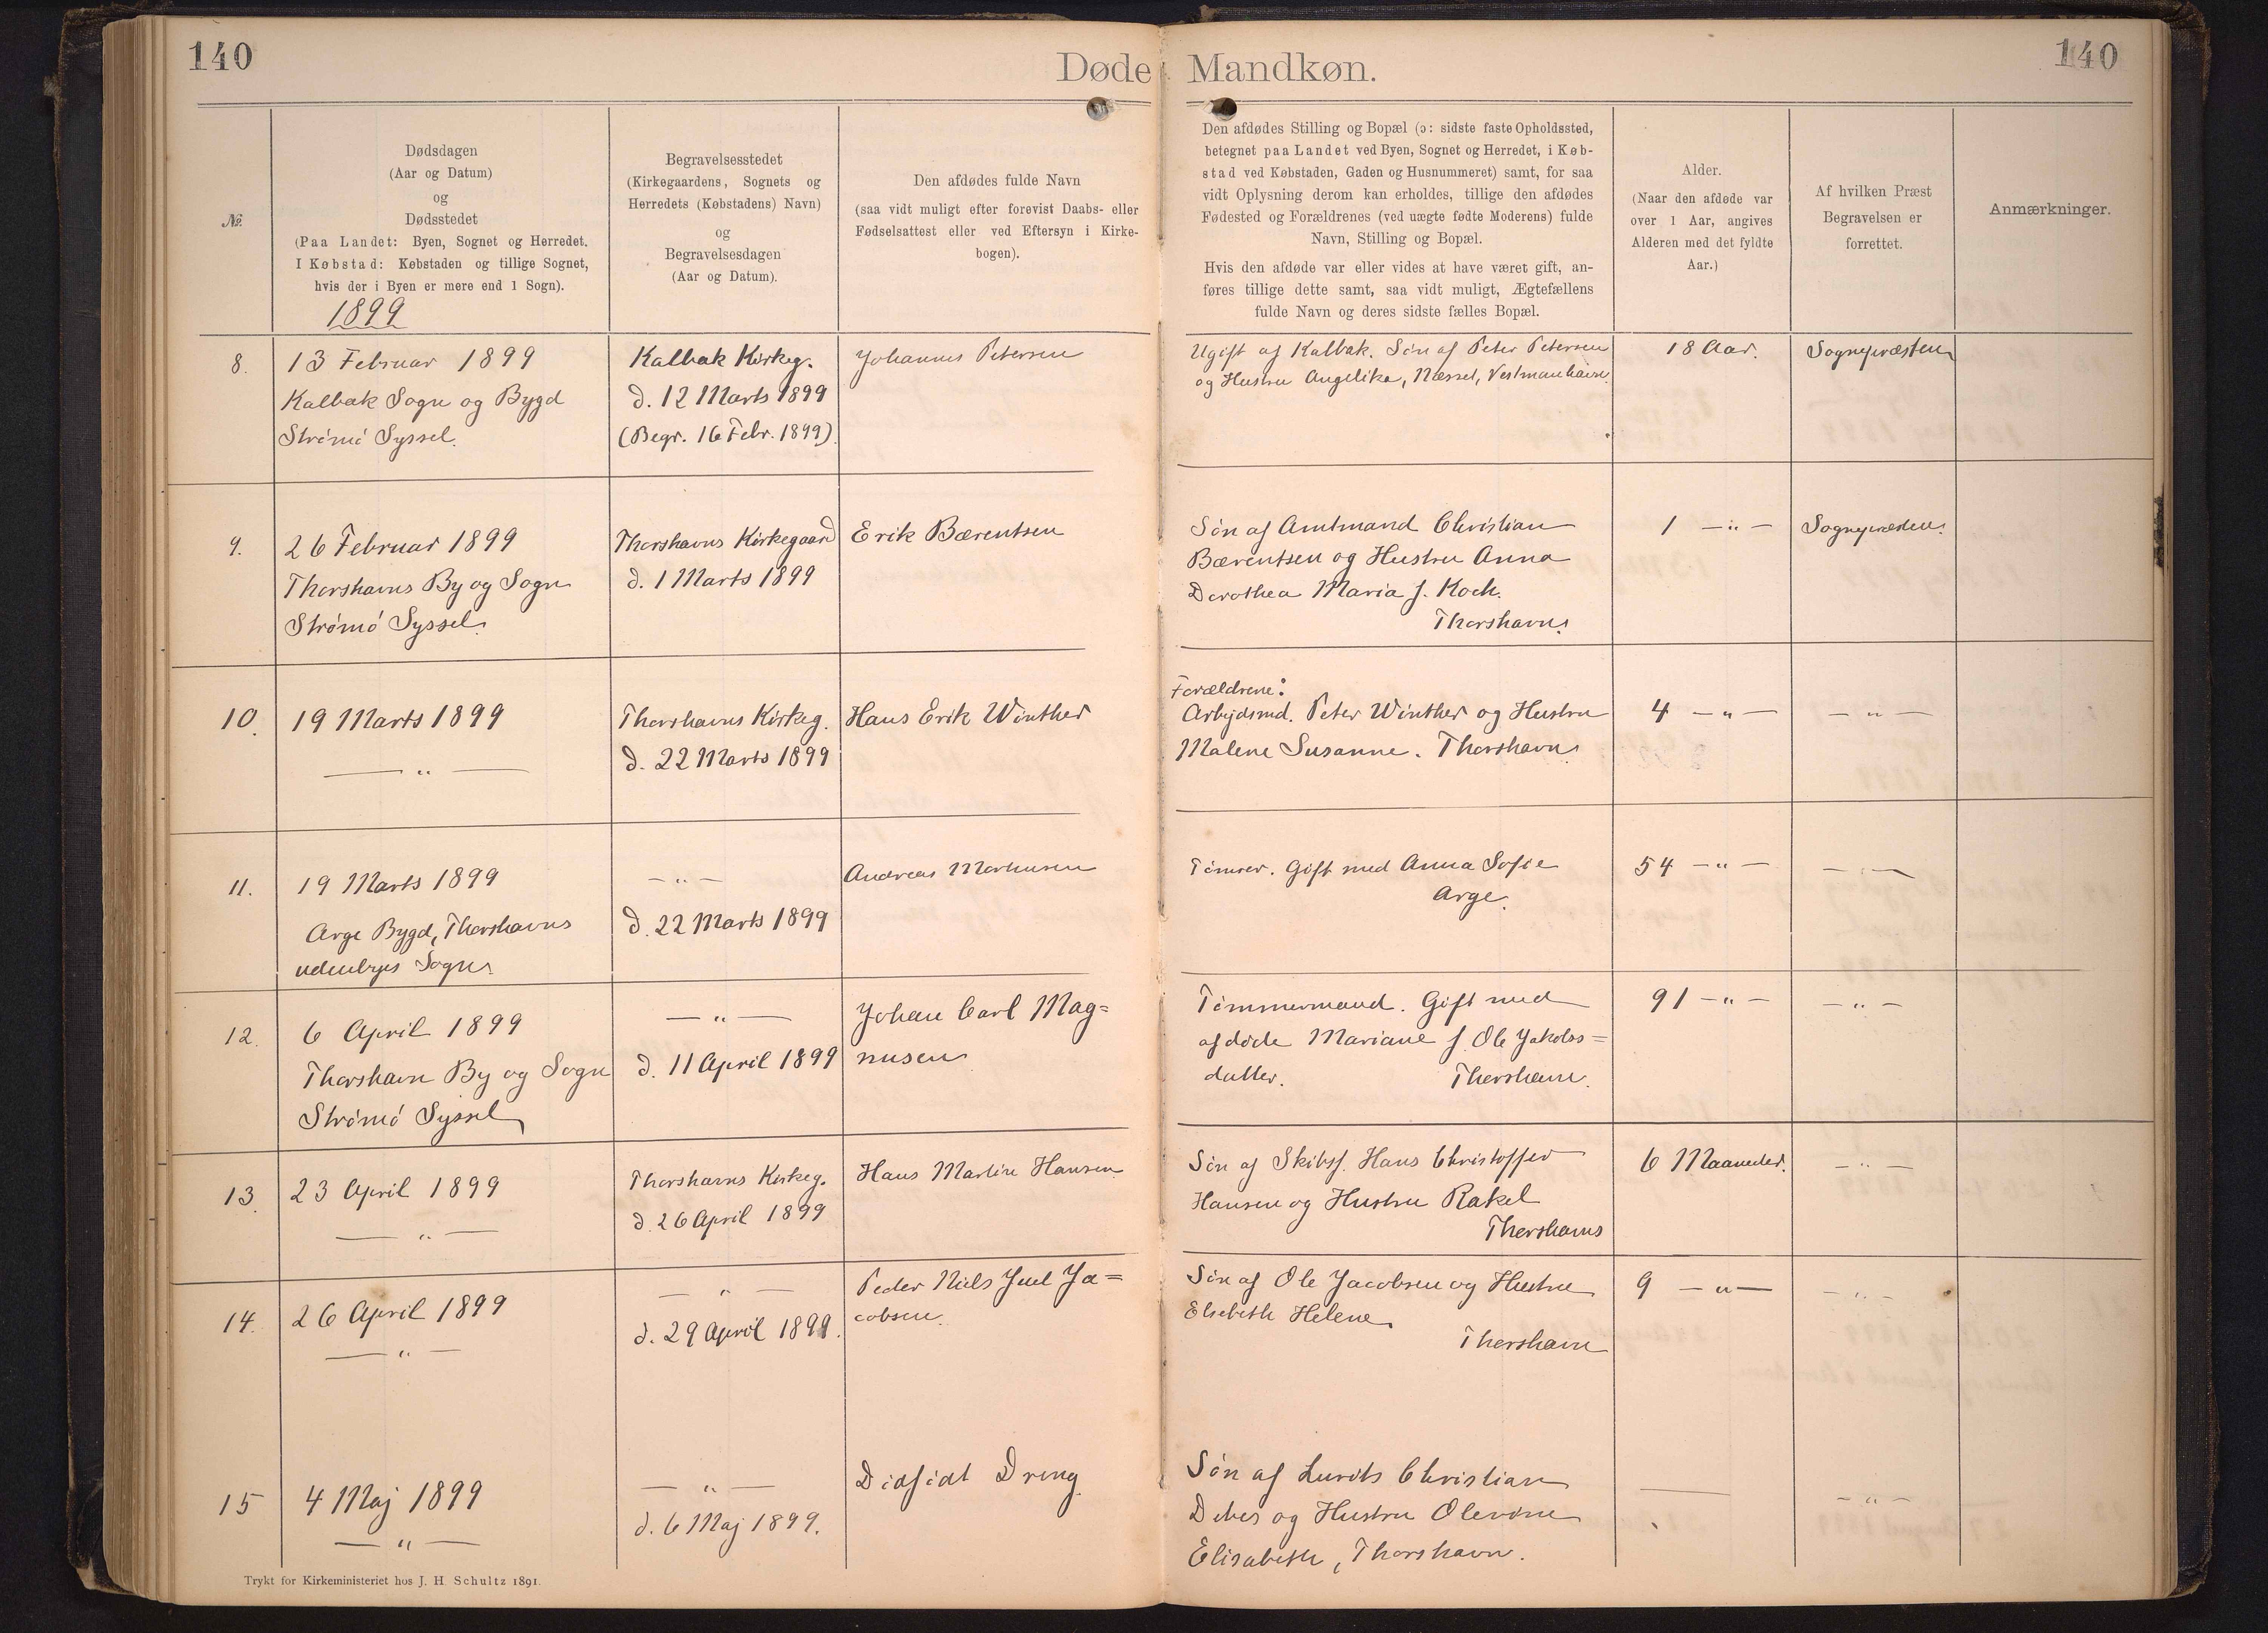 140
Døde Mandkøn.
140
№
Dødsdagen
(Aar og Datum)
og
Dødsstedet
(Paa Landet: Byen, Sognet og Herredet.
I Købstad: Købstaden og tillige Sognet,
hvis der i Byen er mere end 1 Sogn).
1899
Begravelsesstedet
(Kirkegaardens, Sognets og
Herredets (Købstadens) Navn)
og
Begravelsesdagen
(Aar og Datum).
Den afdødes fulde Navn
(saa vidt muligt efter forevist Daabs- eller
Fødselsattest eller ved Eftersyn i Kirke-
bogen).
Den afdødes Stilling og Bopæl (ɔ: sidste faste Opholdssted,
betegnet paa Landet ved Byen, Sognet og Herredet, i Køb-
stad ved Købstaden, Gaden og Husnummeret) samt, for saa
vidt Oplysning derom kan erholdes, tillige den afdødes
Fødested og Forældrenes (ved uægte fødte Moderens) fulde
Navn, Stilling og Bopæl.
Hvis den afdøde var eller vides at have været gift, an-
føres tillige dette samt, saa vidt muligt, Ægtefællens
fulde Navn og deres sidste fælles Bopæl.
Alder.
(Naar den afdøde var
over 1 Aar, angives
Alderen med det fyldte
Aar.)
Af hvilken Præst
Begravelsen er
forrettet.
Anmærkninger.
8.
13 Februar 1899
Kalbak Sogn og Bygd
Strømø Syssel.
Kalbak Kirkeg.
d. 12 Marts 1899
(Begr. 16 Febr. 1899).
Johannes Petersen
Ugift af Kalbak. Søn af Peter Petersen
og Hustru Angelika, Næsset, Vestmanhavn.
18 Aar.
Sognepræsten
9.
26 Februar 1899
Thorshavns By og Sogn
Strømø Syssel.
Thorshavns Kirkegaard
d. 1 Marts 1899
Erik Bærentsen
Søn af Amtmand Christian
Bærentsen og Hustru Anna
Dorothea Maria f. Koch.
Thorshavn.
1 — " —
Sognepræsten.
10.
19 Marts 1899
— " —
Thorshavns Kirkeg.
d. 22 Marts 1899
Hans Erik Winther
Forældrene:
Arbejdsmd. Peter Winther og Hustru
Malene Susanne. Thorshavn.
4 — " —
— " —
11.
19 Marts 1899
Arge Bygd, Thorshavns
udenbyes Sogn.
— " —
d. 22 Marts 1899
Andreas Morhusen
Tømrer. Gift med Anna Sofie
Arge.
54 — " —
— " —
12.
6 April 1899
Thorshavn By og Sogn
Strømø Syssel
— " —
d. 11 April 1899
Johan Carl Mag=
nusen
Tømmermand. Gift med
afdøde Mariane f. Ole Jakobs=
datter. Thorshavn.
91 — " —
— " —
13.
23 April 1899
— " —
Thorshavns Kirkeg.
d. 26 April 1899
Hans Martin Hansen
Søn af Skibsf. Hans Christoffer
Hansen og Hustru Rakel
Thorshavns
6 Maaneder.
— " —
14.
26 April 1899
— " —
— " —
d. 29 April 1899.
Peder Niels Juel Ja=
cobsen.
Søn af Ole Jacobsen og Hustru
Elsebeth Helene.
Thorshavn
9 — " —
— " —
15
4 Maj 1899
— " —
— " —
d. 6 Maj 1899.
Dødfødt Dreng.
Søn af Lurits Christian
Debes og Hustru Olevine
Elisabeth, Thorshavn.
—
— " —
Trykt for Kirkeministeriet hos J. H. Schultz 1891.